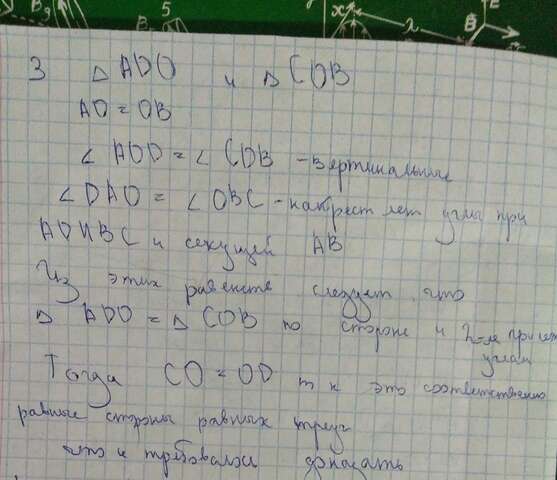 5
x
λ
B
3 △ ADO и △ COB
AO = OB
∠ AOD = ∠ COB - вертикальные
∠ DAO = ∠ OBC - накрест леж углы при
AD и BC и секущей AB
Из этих равенств следует, что
△ ADO = △ COB по стороне и 2-м
углам
Тогда CO = OD т к это соответственно
равные стороны равных треуг
что и требовалось доказать